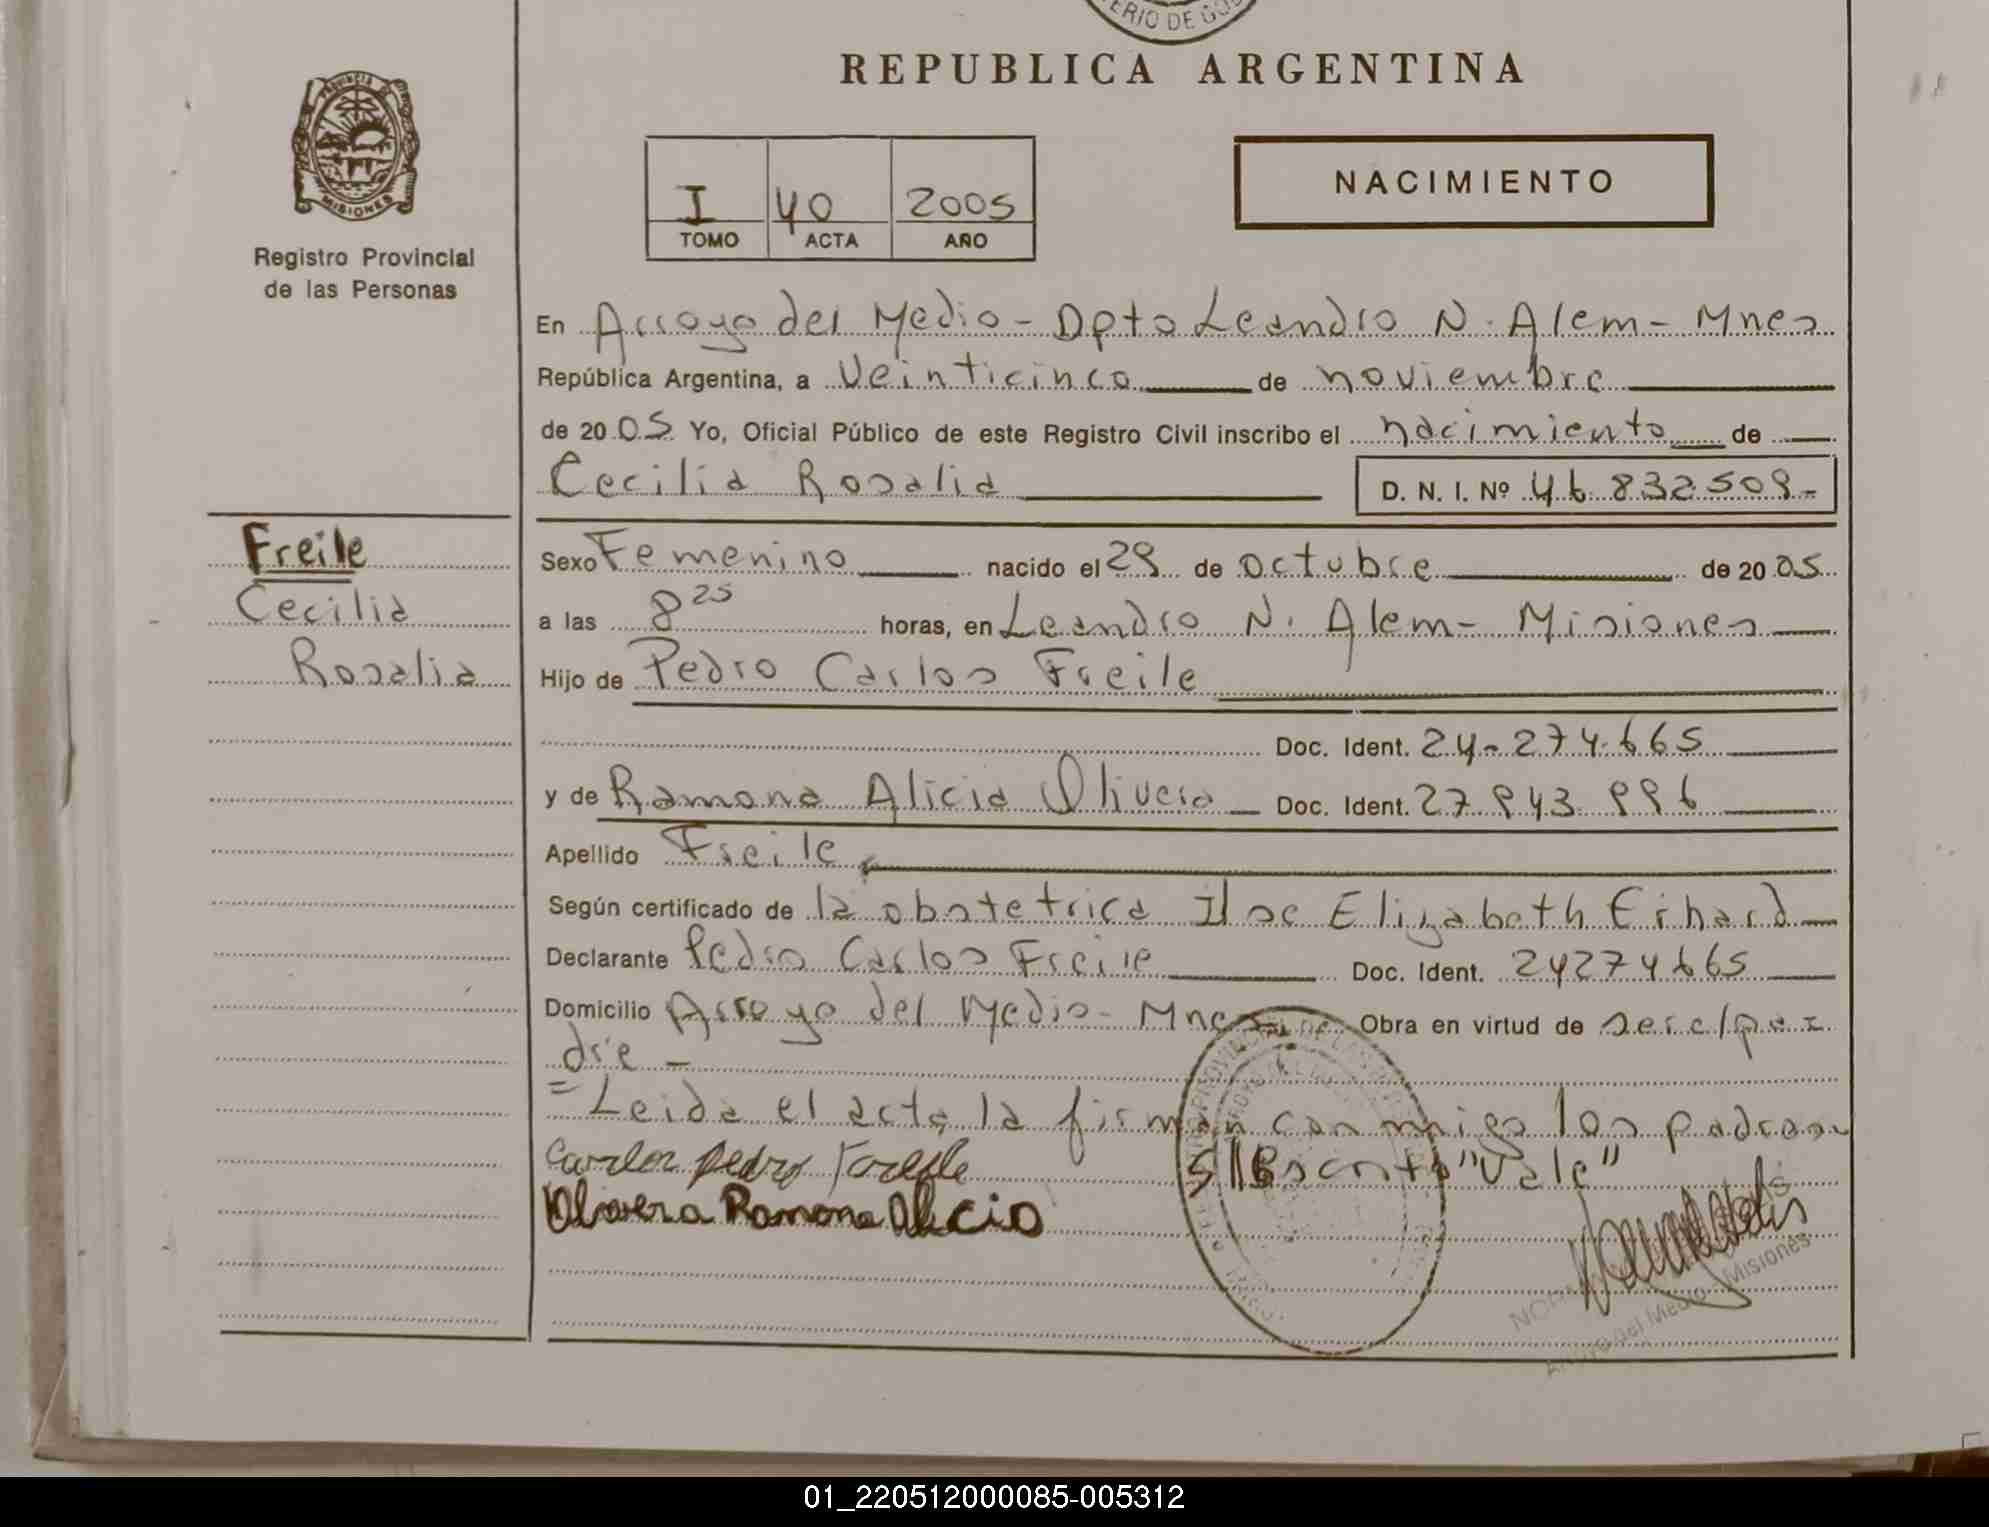 TERIO DE GOB
REPUBLICA ARGENTINA
PROVINCIA DE
MISIONES
Registro Provincial
de las Personas
I 40 2005
TOMO ACTA AÑO
NACIMIENTO
En Arroyo del Medio - Dpto Leandro N. Alem - Mnes
República Argentina, a Veinticinco de noviembre
de 2005 Yo, Oficial Público de este Registro Civil inscribo el nacimiento de
Cecilia Rosalia D. N. I. Nº 46 832509-
Freile
Cecilia
Rosalia
Sexo Femenino nacido el 29 de octubre de 2005
a las 8 25 horas, en Leandro N. Alem - Misiones
Hijo de Pedro Carlos Freile
Doc. Ident. 24-274.665
y de Ramona Alicia Olivera Doc. Ident. 27.943.996
Apellido Freile
Según certificado de la obstetrica Ilse Elizabeth Erhard
Declarante Pedro Carlos Freile Doc. Ident. 24274665
Domicilio Arroyo del Medio - Mnes Obra en virtud de ser el pa=
dre -
= Leida el acta la firman conmigo los padres
S/ "Vale"
Carlos Pedro Freile
Olivera Ramona Alicia
Arroyo del Medio - Misiones
01_220512000085-005312